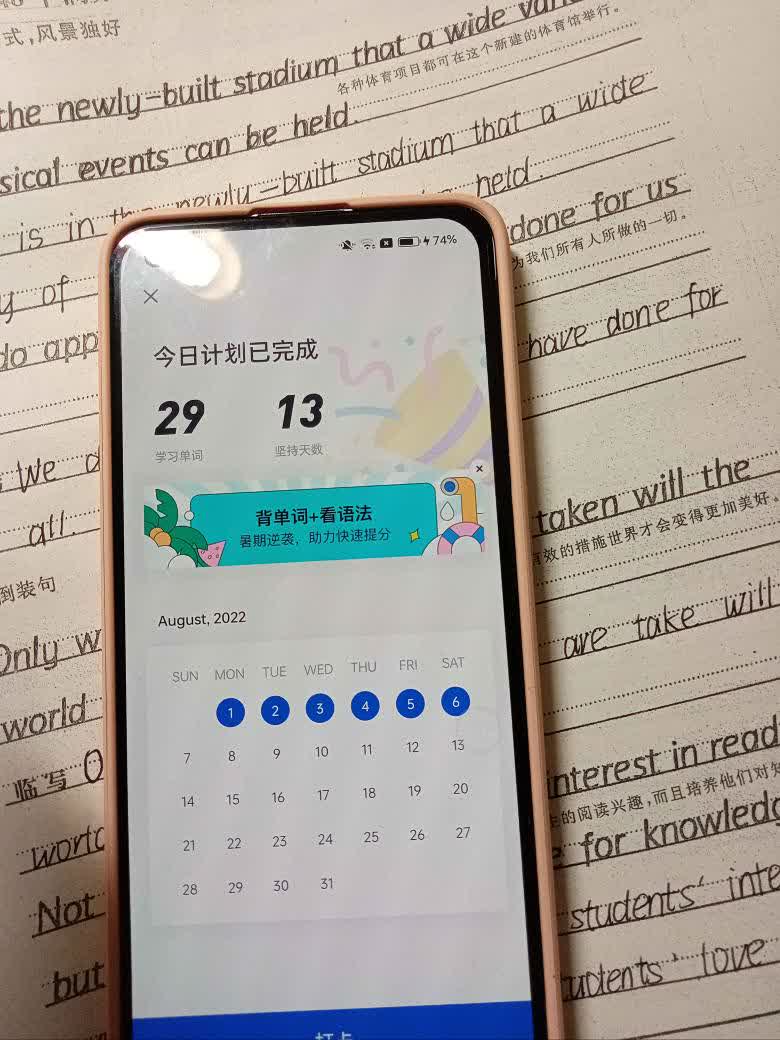 式，风景独好
the newly-built stadium that a wide
各种体育项目都可在这个新建的体育馆举行。
sical events can be held.
is in the newly-built stadium that a wide
held.
done for us
为我们所有人所做的一切。
y of
do app
have done for
We
all.
taken will the
有效的措施世界才会变得更加美好。
倒装句
are take will
Only w
world
临写 O
interest in read
的阅读兴趣，而且培养他们对知
for knowledg
world
Not
students' inte
but
students' love
74%
今日计划已完成
29 13
学习单词 坚持天数
背单词+看语法
暑期逆袭，助力快速提分
August, 2022
SUN MON TUE WED THU FRI SAT
1 2 3 4 5 6
7 8 9 10 11 12 13
14 15 16 17 18 19 20
21 22 23 24 25 26 27
28 29 30 31
打卡